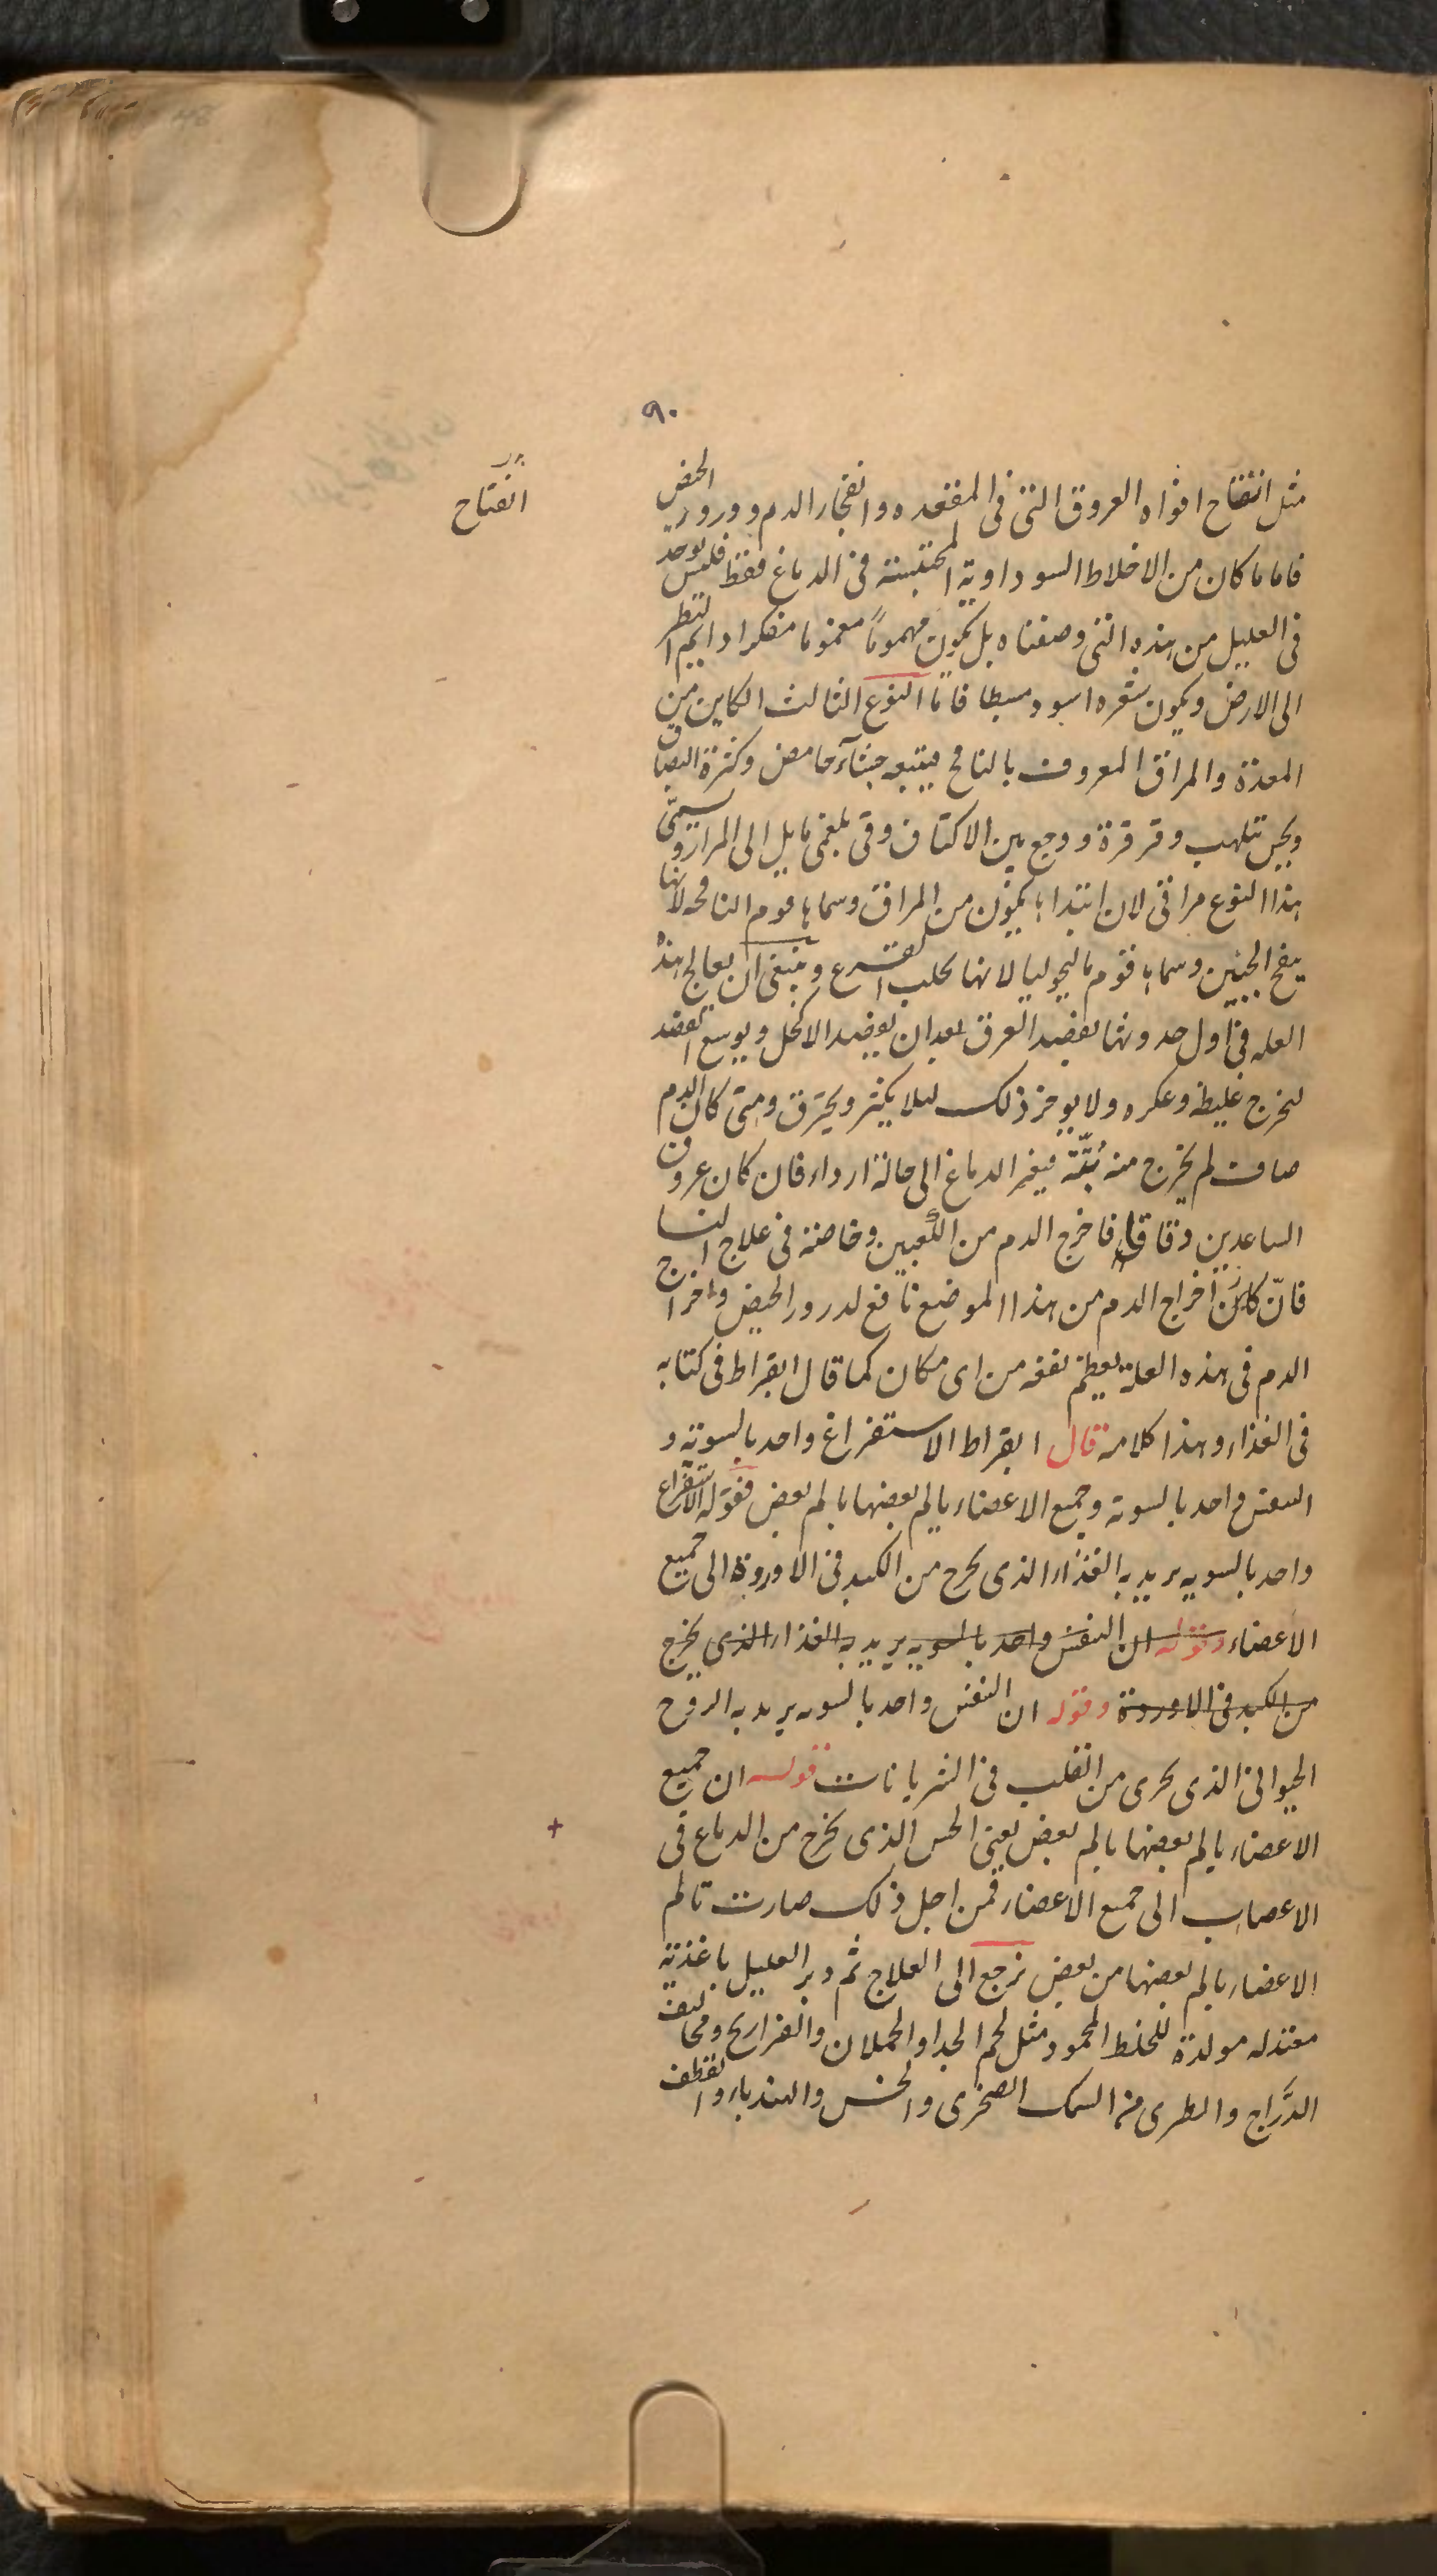 ٩٠
مثل انتفاخ افواه العروق التى فى المقعده وانفجار الدم وورود الحيض
انفتاح
فاما ما كان من الاخلاط السوداوية المحتبسة فى الدماغ فقط فليس يوجد
فى العليل من هذه التى وصفناه بل يكون مهموماً مغموما مفكرا دايم النظر
الى الارض ويكون شعره اسود سبطا فامّا النوع الثالث الكاين من
المعدة والمراق المعروف بالنافخ فيتبعه جشآء حامض وكثرة البصاق
ويجس تلهب وقرقرة ووجع بين الاكتاف وقى بلغمى مايل الى المرار ويسمّى
هذا النوع مراقى لان ابتداءها يكون من المراق وسماها قوم النافخه لانها
ينفخ الجنبين وسماها قوم ماليخوليا لانها تجلب الفزع وينبغى ان يعالج هذه
العله فى اول حدوثها بفصد العرق بعد ان يفصد الاكحل ويوسع الفصد
ليخرج غليظه وعكره ولا يوخر ذلك ليلا يكثر ويحترق ومتى كان الدم
صاف لم يخرج منه بُتّة فيغير الدماغ الى حالة ارداء فان كان عروق
الساعدين دقاقا فاخرج الدم من الكعبين وخاصة فى علاج النسا
فانّ كان اخراج الدم من هذا الموضع نافع لدرور الحيض واخراج
الدم فى هذه العلة يعظم نفعه من اى مكان كما قال ابقراط فى كتابه
فى الغذاء وهذا كلامه قال ابقراط الاستفراغ واحد بالسوية و
النفس واحد بالسوية وجميع الاعضاء يالم بعضها بالم بعض فقوله الاستفراغ
واحد بالسويه يريد به الغذاء الذى يخرج من الكبد فى الاوردة الى جميع
الاعضاء وقوله ان النفس واحد بالسويه يريد به الغذاء الذى يخرج
من الكبد فى الاوردة وقوله ان النفس واحد بالسويه يريد به الروح
الحيوانى الذى يجرى من القلب فى الشريانات قوله ان جميع
الاعضاء يالم بعضها بالم بعض يعنى الحس الذى يخرج من الدماغ فى
+
الاعصاب الى جميع الاعضاء فمن اجل ذلك صارت تالم
الاعضاء بالم بعضها من بعض نرجع الى العلاج ثم دبر العليل باغذية
معتدله مولدة للخلط المحمود مثل لحم الجدا والحملان والفراريج ومخاليف
الدَّراج والطرى من السمك الصخرى والخس والهندباء والقطف